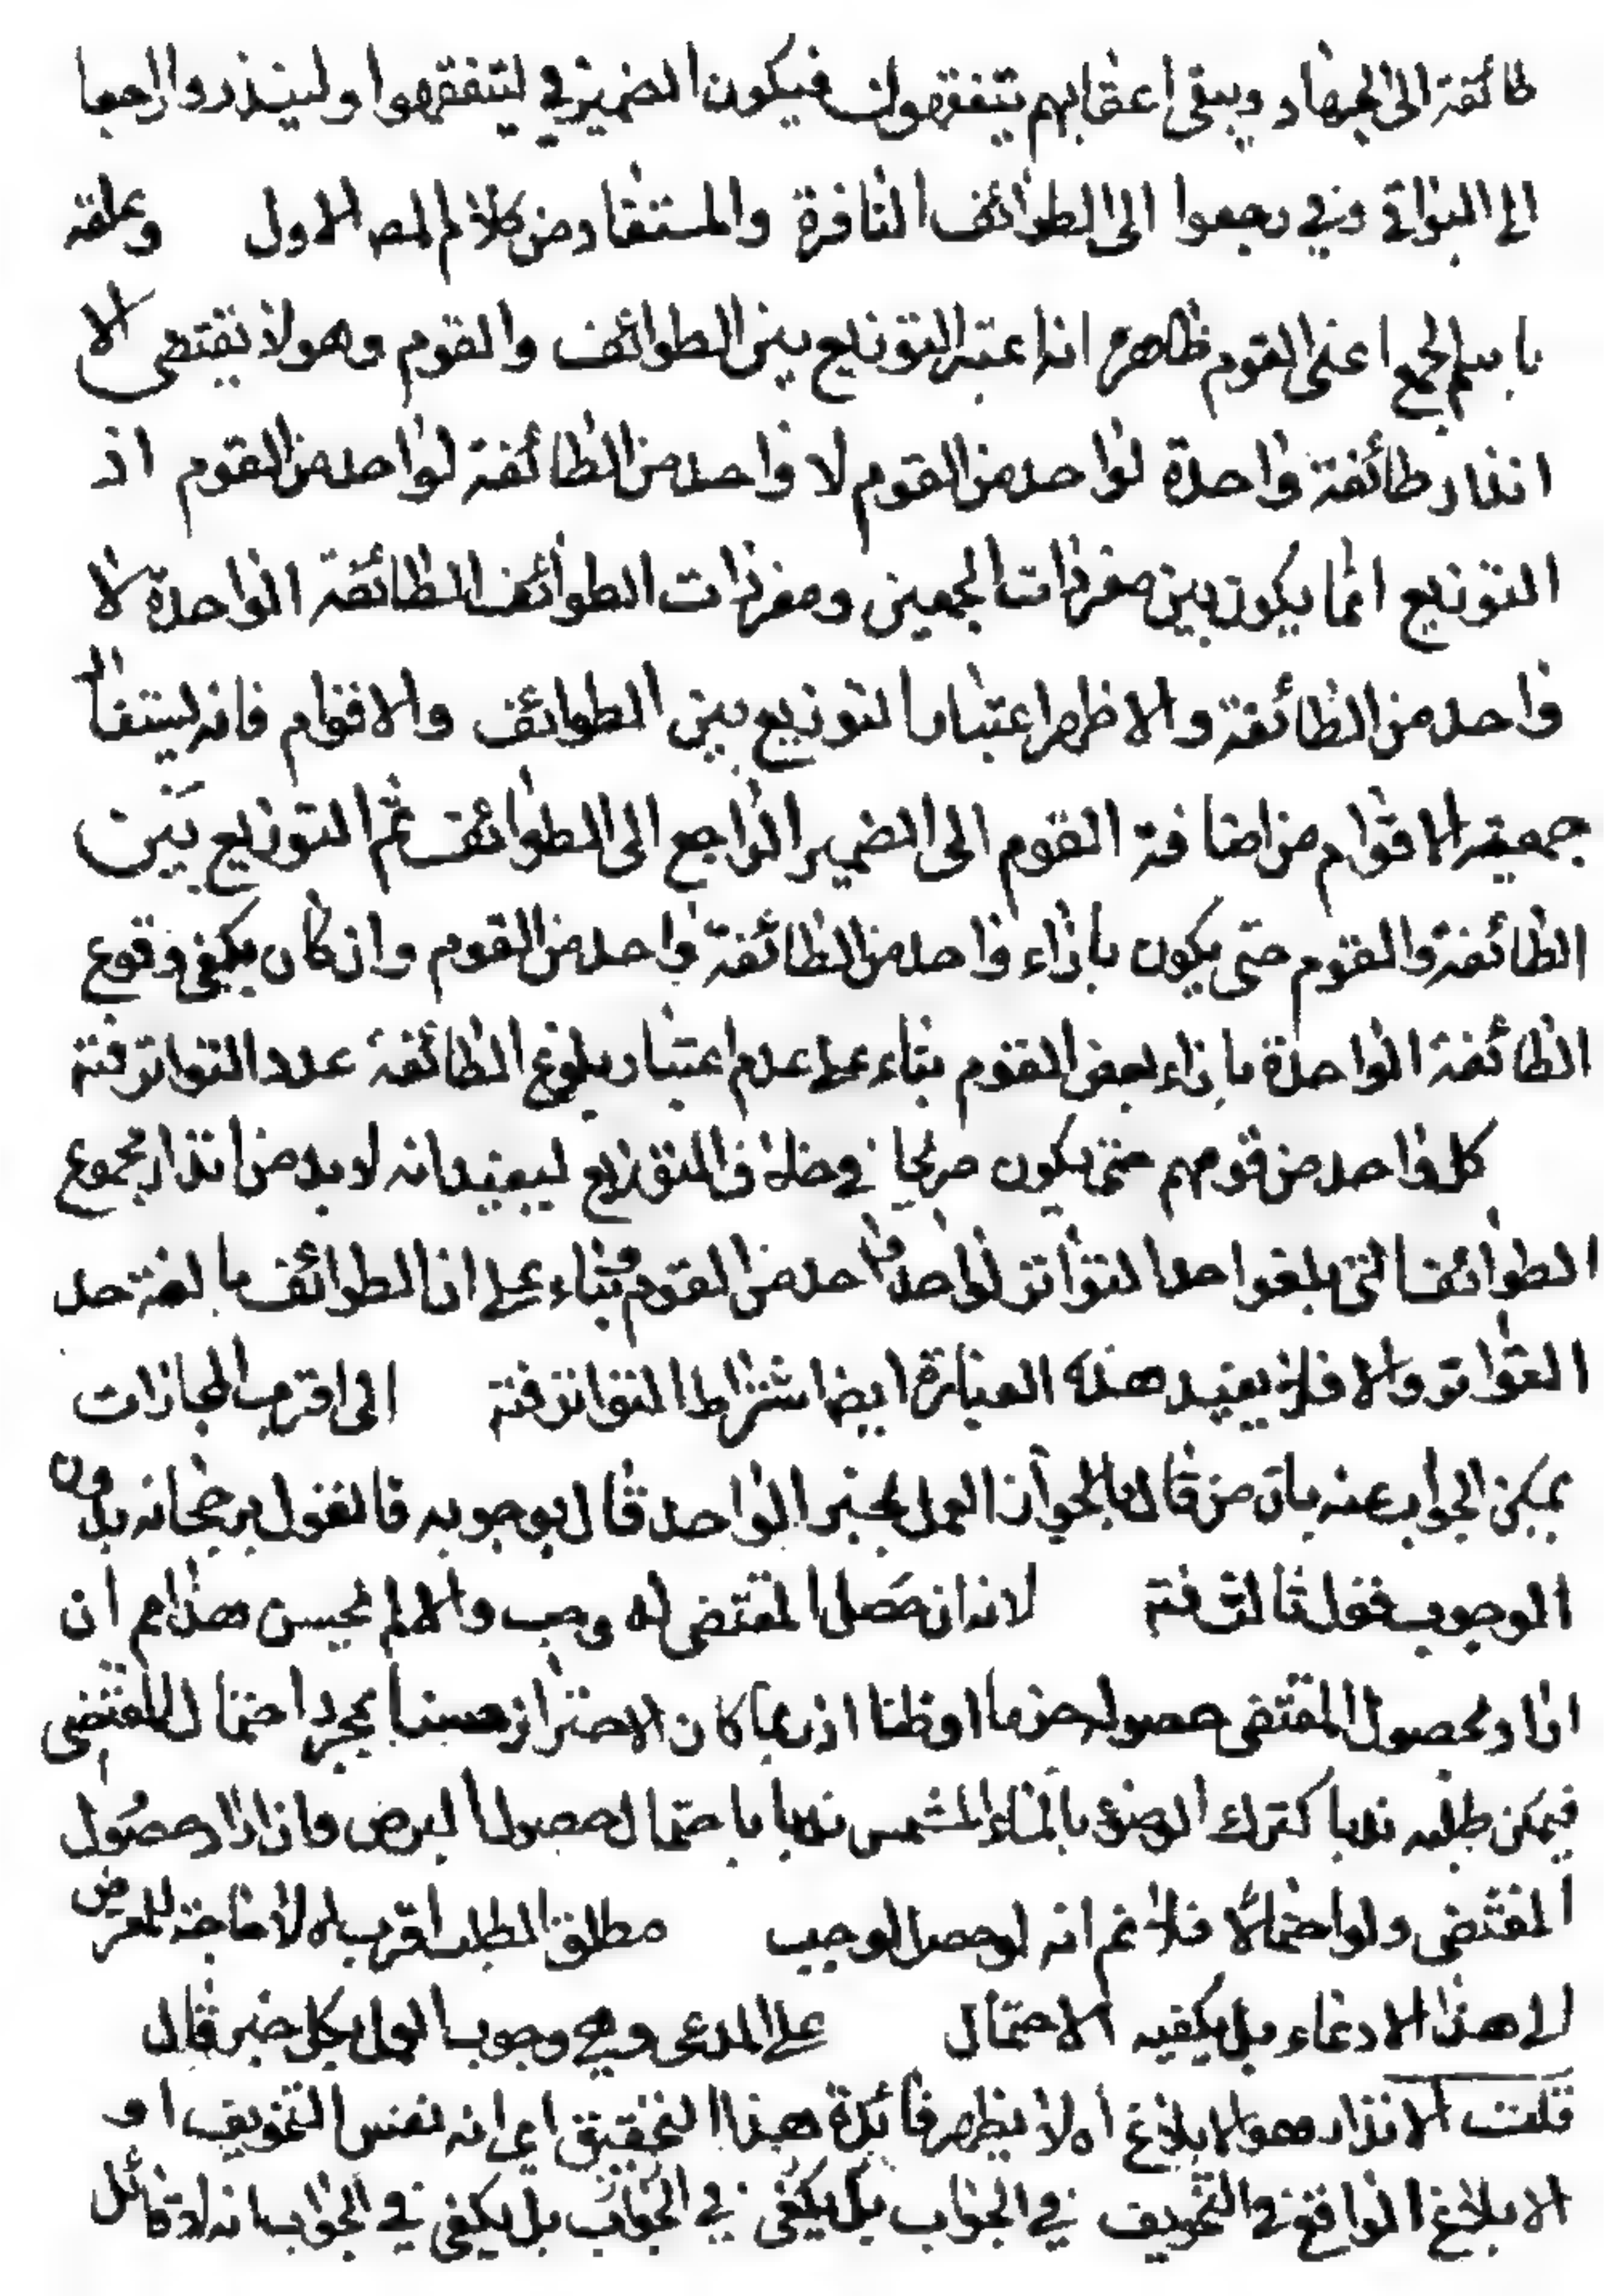 طائفة الى الجهاد ويبقى اعقابهم يتفقهون فيكون الضمير في ليتفقهوا ولينذروا راجعا
الى البواقي وفي رجعوا الى الطوائف النافرة والمستفاد من كلام المصـ الاول وعلقه
باسم الجمع اعنى القوم ظاهره انه اعتبر التوزيع بين الطوائف والقوم وهو لا يقتضى الا
انذار طائفة واحدة لواحد من القوم لا واحد من الطائفة لواحد من القوم اذ
التوزيع انما يكون بين مفردات الجمعين ومفردات الطوائف الطائفة الواحدة لا
واحد من الطائفة والاظهر اعتبار التوزيع بين الطوائف والاقوام فانه يستفاد
جمعية الاقوام من اضافة القوم الى الضمير الراجع الى الطوائف ثم التوزيع بين
الطائفة والقوم حتى يكون بازاء واحد من الطائفة واحد من القوم وان كان يكفى وقوع
الطائفة الواحدة بازاء بعض القوم بناء على عدم اعتبار بلوغ الطائفة عدد التواتر فتة
كل واحد من قومهم حتى يكون صريحا في خلاف التوزيع ليفيد انه لا بد من انذار مجموع
الطوائف التي بلغوا حد التواتر لواحد واحد من القوم بناء على ان الطوائف بالغة حد
التواتر والا فلا يفيد هذه العبارة ايضا اشتراط التواتر فتة الى اقرب المجازات
يمكن الجواب عنه بان من قال بالجواز العمل بخبر الواحد قال بوجوبه فالقول برجحانه بدون
الوجوب قول ثالث فتة لانه ان حصل المقتضى له وجب والا لم يحسن هذا م ان
اراد بحصول المقتضى حصوله جزما او ظنا اذ ربما كان الاحتراز حسنا بمجرد احتمال المقتضى
فيمكن طلبه ندبا كترك الوضوء بالماء المشمس ندبا باحتمال حصول البرص وان اراد حصول
المقتضى ولو احتمالا فلا نم انه لو حصل لوجب مطلق الطلب اقرب اه لا حاجة للمعترض
الى هذا الادعاء بل يكفيه الاحتمال على المدعى وهي وجوب العمل بكل خبر قال
قلت الانذار هو الابلاغ اه لا يظهر فائدة هذا التحقيق اى انه نفس التخويف او
الابلاغ الواقع في التخويف في الجواب بل يكفى في الجواب بل يكفى في الجواب انه لا قائل